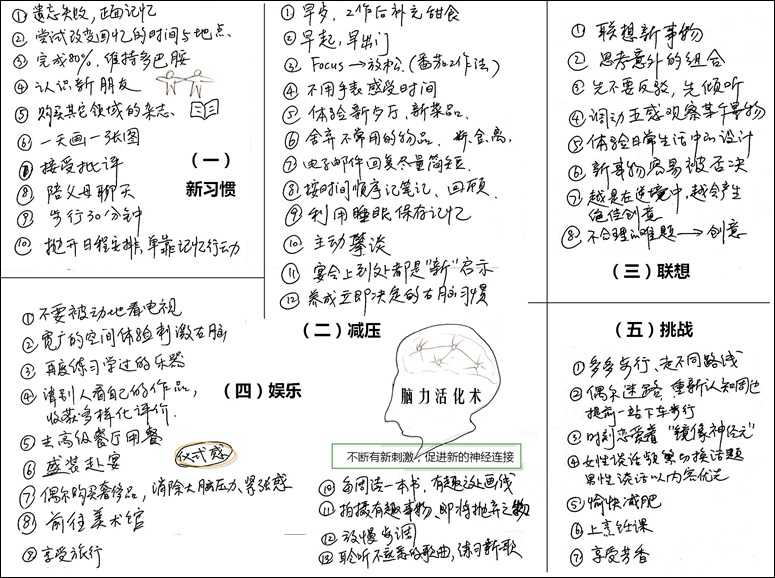 ①遗忘失败,正面记忆
②尝试改变回忆的时间与地点.
③完成80%.维持多巴胺
④认识新朋友
⑤购买其它领域的杂志.
⑥一天画一张图
⑦接受批评
⑧陪父母聊天
⑨步行30分钟
⑩抛开日程安排,单靠记忆行动
(一)
新习惯
①早点,工作后补充甜食
②早起,早出门
③Focus→放松.(番茄工作法)
④不用手表感受时间
⑤体验新餐厅,新菜品.
⑥舍弃不常用的物品. 断.舍.离.
⑦电子邮件回复尽量简短.
⑧按时间顺序记笔记、回顾.
⑨利用睡眠保存记忆
⑩主动攀谈
⑪宴会上到处都是"新"启示
⑫养成立即决定的右脑习惯
(二)减压
①联想新事物
②思考意外的组合
③先不要反驳,先倾听
④调动五感观察某午事物
⑤体验日常生活中的设计
⑥新事物容易被否决
⑦越是在逆境中,越会产生
绝佳创意
⑧不合理的难题→创意
(三)联想
①不要被动地看电视
②宽广的空间体验刺激右脑
③再度练习学过的乐器
④请别人看自己的作品,
收获多样化评价.
⑤去高级餐厅用餐
⑥盛装赴宴
仪式感
⑦偶尔购买奢侈品,消除大脑压力、紧张感
⑧前往美术馆
⑨享受旅行
(四)娱乐
脑力活化术
不断有新刺激,促进新的神经连接
⑩每周读一本书,有趣处画线
⑪拍摄有趣事物、即将抛弃之物
⑫放慢步调
⑬聆听不熟悉的歌曲,练习新歌
(五)挑战
①多多步行、走不同路线
②偶尔迷路,重新认知周边
提前一站下车步行
③时刻恋爱着"镜像神经元"
④女性谈话频繁切换话题
男性谈话以内容优先
⑤愉快减肥
⑥上烹饪课
⑦享受芳香